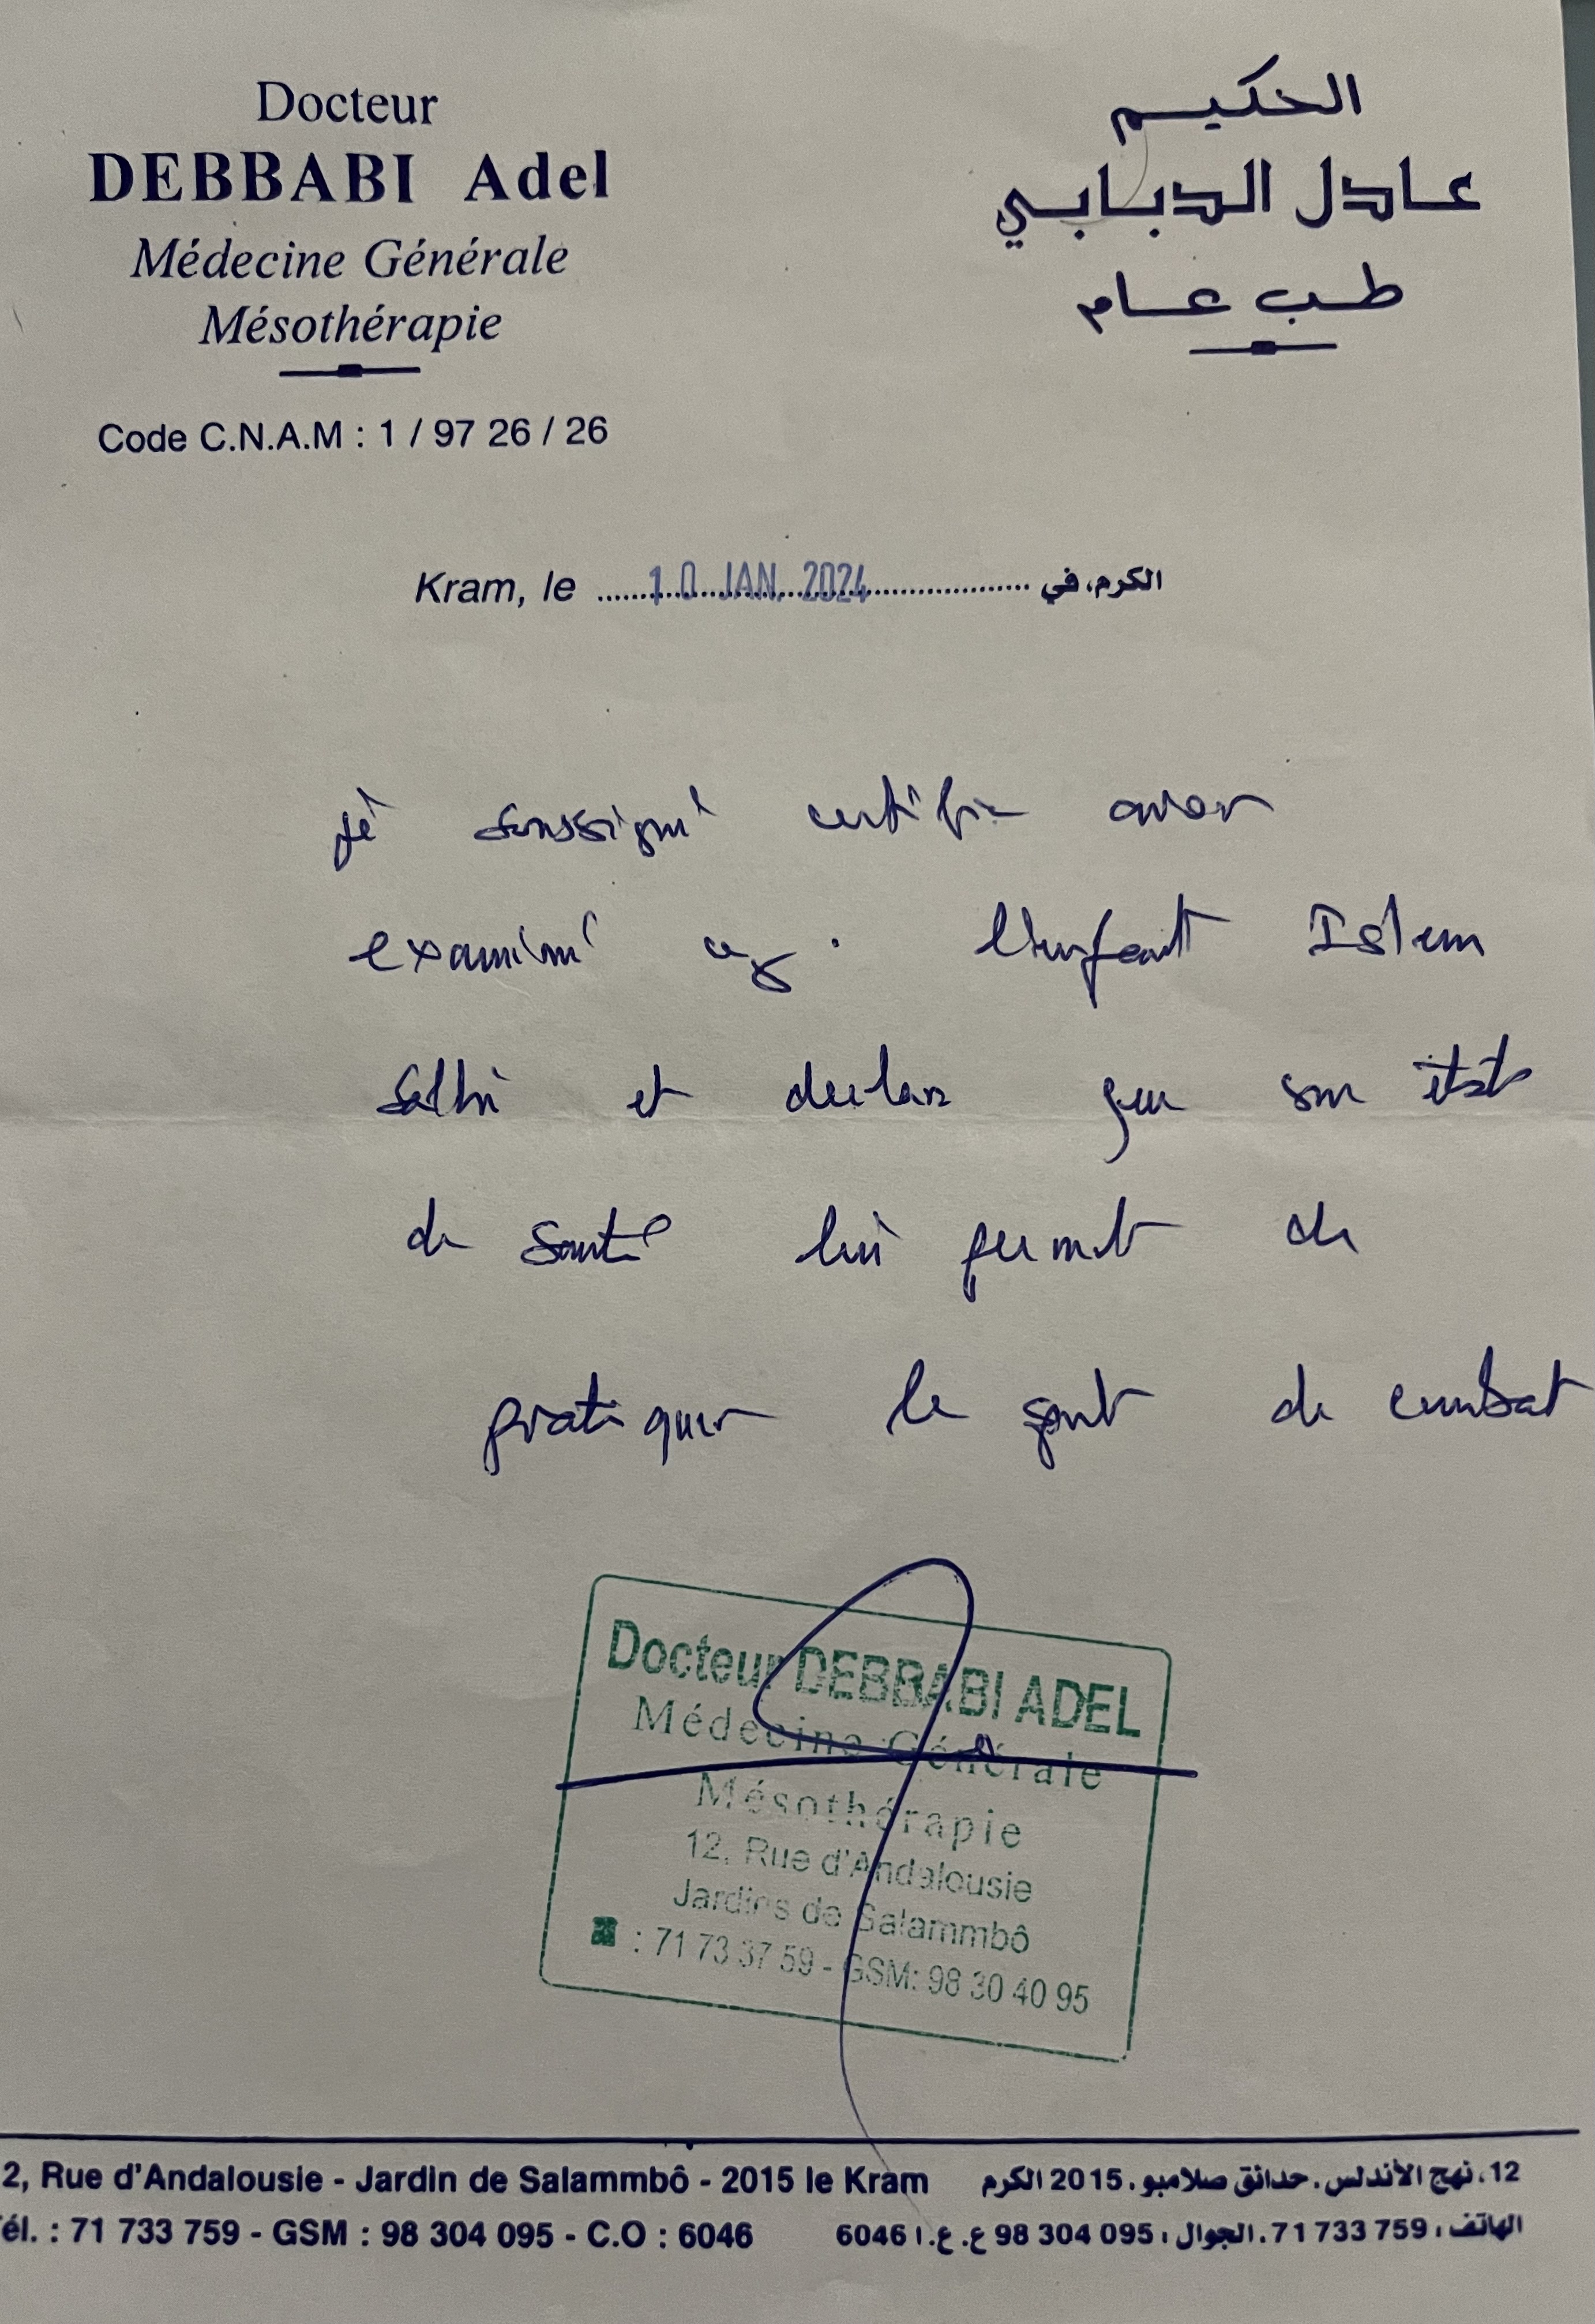 Docteur
DEBBABI Adel
Médecine Générale
Mésothérapie
Code C.N.A.M : 1 / 97 26 / 26
الحكيم
عادل الدبابي
طب عام
Kram, le 10 JAN. 2024 الكرم، في
je soussigné certifie avoir
examiné l'enfant Islem
Salhi et declare que son état
de santé lui permet de
pratiquer le sport de combat
Docteur DEBBABI ADEL
Médecine Générale
Mésothérapie
12, Rue d'Andalousie
Jardins de Salammbô
: 71 73 37 59 - GSM: 98 30 40 95
2, Rue d'Andalousie - Jardin de Salammbô - 2015 le Kram
12، نهج الأندلس . حدائق صلامبو . 2015 الكرم
él. : 71 733 759 - GSM : 98 304 095 - C.O : 6046
الهاتف : 71 733 759 . الجوال : 98 304 095 ع. ع. ا 6046